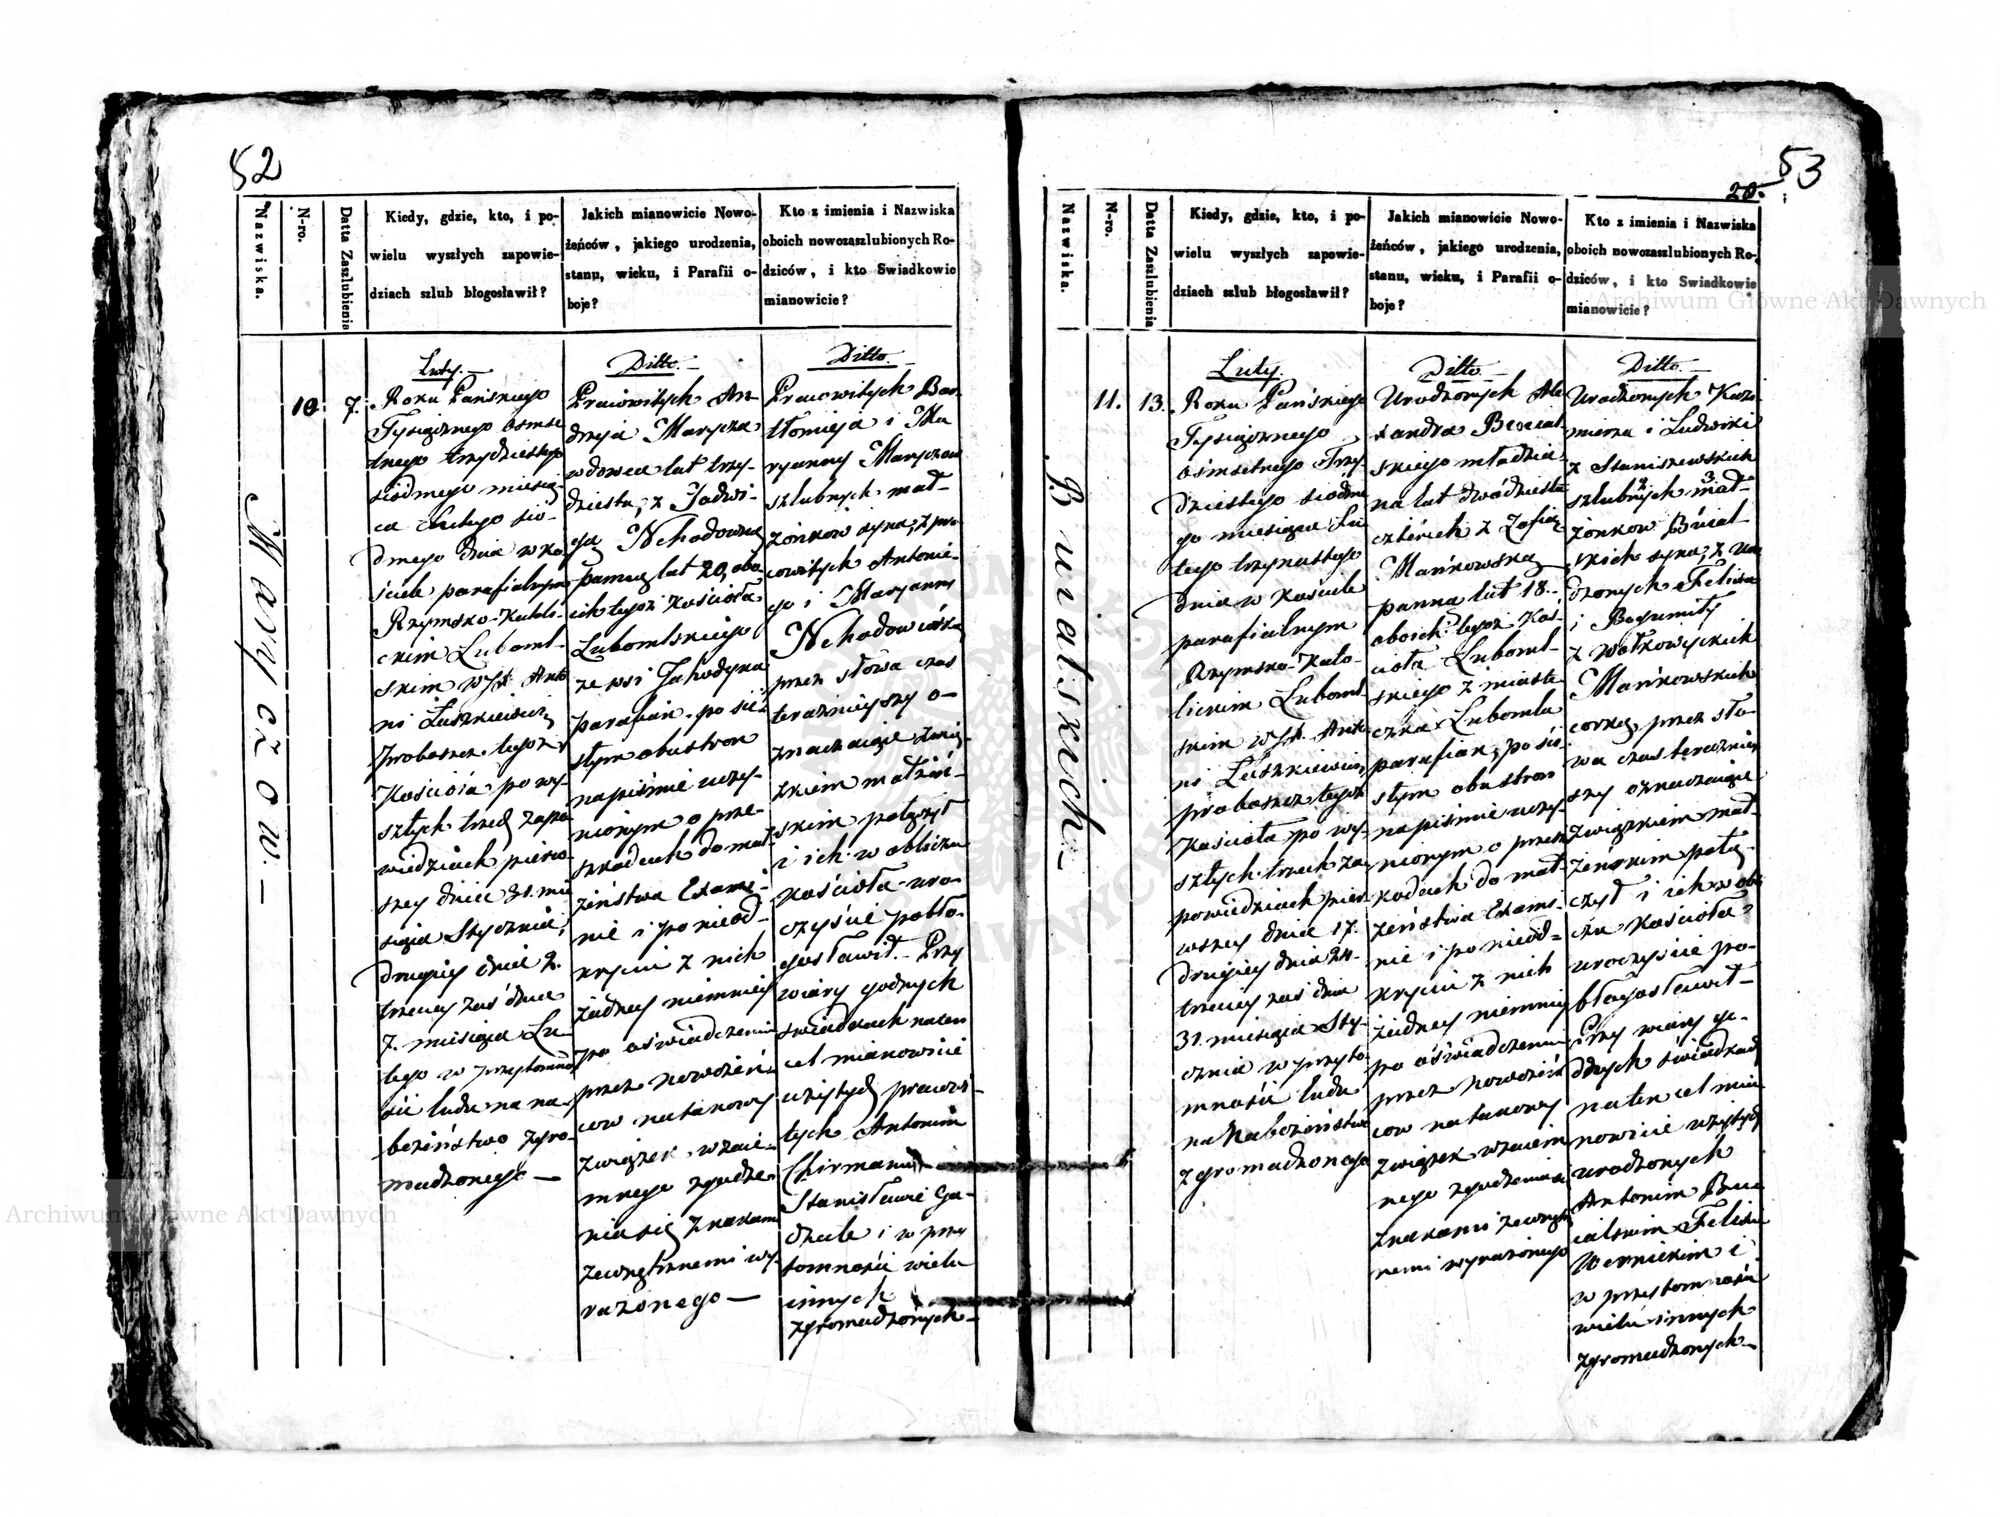 52
Nazwiska.
N-ro.
Datta Zaszlubienia
Kiedy, gdzie, kto, i po-
wielu wyszłych zapowie-
dziach szlub błogosławił?
Jakich mianowicie Nowo-
żeńców, jakiego urodzenia,
stanu, wieku, i Parafii o-
boje?
Kto z imienia i Nazwiska
oboich nowozaszlubionych Ro-
dziców, i kto Swiadkowie
mianowicie?
Maryczow.
10.
7.
Luty.
Roku Pańskiego
Tysiącznego ósmse
tnego trzydziestego
siódmego miesią-
ca Lutego sió-
dmego dnia w ko-
ściele parafialnym
Rzymsko-Katoli-
ckim Luboml-
skim WJX Anto
ni Łuszkiewicz
Proboszcz tegoż
Kościoła po wy-
szłych trzech zapo
wiedziach pierw-
szey dnia 31. mie
siąca Stycznia,
drugiey dnia 2.
trzeciey zaś dnia
7. miesiąca Lu-
tego w przytomno
ści ludu na na-
bożeństwo zgro-
madzonego —
Ditto.
Pracowitych An-
drzeja Marycza
wdowca lat trzy-
dziestu, z Jadwi-
gą Nehodowną
panną lat 20, obo-
ich tegoż Kościoła
Lubomlskiego
ze wsi Jahodyna
parafian, po ści-
słym obustron
na piśmie uczy-
nionym o prze-
szkodach do mał-
żeństwa Exami-
nie i po nieod-
kryciu z nich
żadney niemniey
po oświadczeniu
przez nowożeń-
cow na takowy
związek wzaie-
mnego zgodze-
nia się znakami
zewnętrznemi wy-
rażonego —
Ditto.
Pracowitych Bar-
tłomieja i Ma
ryanny Maryczow
szlubnych mał-
żonkow syna, z pra
cowitych Antonie-
go i Maryanny
Nehodow córką
przez słowa czas
teraźnieyszy o-
znaczaiące zwią-
zkiem małżeń-
skim połączył
i ich w obliczu
kościoła uro-
czyście pobło-
gosławił. Przy
wiary godnych
świadkach na ten
cel mianowicie
użytych pracowi-
tych Antonim
Chirmanu
Stanisławie Ga-
dzale i w przy
tomności wielu
innych
zgromadzonych —
53
20.
Nazwiska.
N-ro.
Datta Zaszlubienia
Kiedy, gdzie, kto, i po-
wielu wyszłych zapowie-
dziach szlub błogosławił?
Jakich mianowicie Nowo-
żeńców, jakiego urodzenia,
stanu, wieku, i Parafii o-
boje?
Kto z imienia i Nazwiska
oboich nowozaszlubionych Ro-
dziców, i kto Swiadkowie
mianowicie?
11.
13.
Luty.
Roku Pańskiego
Tysiącznego
ośmsetnego Trzy-
dziestego siódme
go miesiąca Lu
tego trzynastego
dnia w Kościele
parafialnym
Rzymsko-Kato-
lickim Luboml-
skim WJX Anto
ni Łuszkiewicz
proboszcz tegoż
Kościoła po wy-
szłych trzech za
powiedziach pier-
wszey dnia 17.
drugiey dnia 24.
trzeciey zaś dnia
31. miesiąca Sty-
cznia w przyto-
mności ludu
na Nabożeństwo
zgromadzonego
Ditto.
Urodzonych Ale
xandra
skiego młodzia-
na lat dwódziestu
czterech z Zofią
Mańkowską
panną lat 18.
oboich tegoż Koś-
cioła Luboml-
skiego z miaste
czka Lubomla
parafian, po ści-
słym obustron
na piśmie uczy-
nionym o przesz
kodach do mał-
żeństwa Exami-
nie i po nieod-
kryciu z nich
żadney niemniey
po oświadczeniu
przez nowożeń
cow na takowy
związek wzaiem
nego zgodzenia się
znakami zewnętrz
nemi wyrażonego
Ditto.
Urodzonych Kazi-
mierza i Ludwiki
z Staniszewskich
szlubnych mał-
żonkow
skich syna, z Uro
dzonych Felixa
i Bogumiły
z Wołkowyckich
Mańkowskich
corką, przez sło-
wa czas teraźniey
szy oznaczaiące
związkiem mał-
żeńskim połą-
czył i ich w obli
czu kościoła
uroczyście po-
błogosławił —
Przy wiary go-
dnych świadkach
na ten cel mia
nowicie użytych
urodzonych
Antonim
Felixie
Wernickim i
w przytomności
wielu innych
zgromadzonych —
Archiwum Główne Akt Dawnych
Archiwum Główne Akt Dawnych